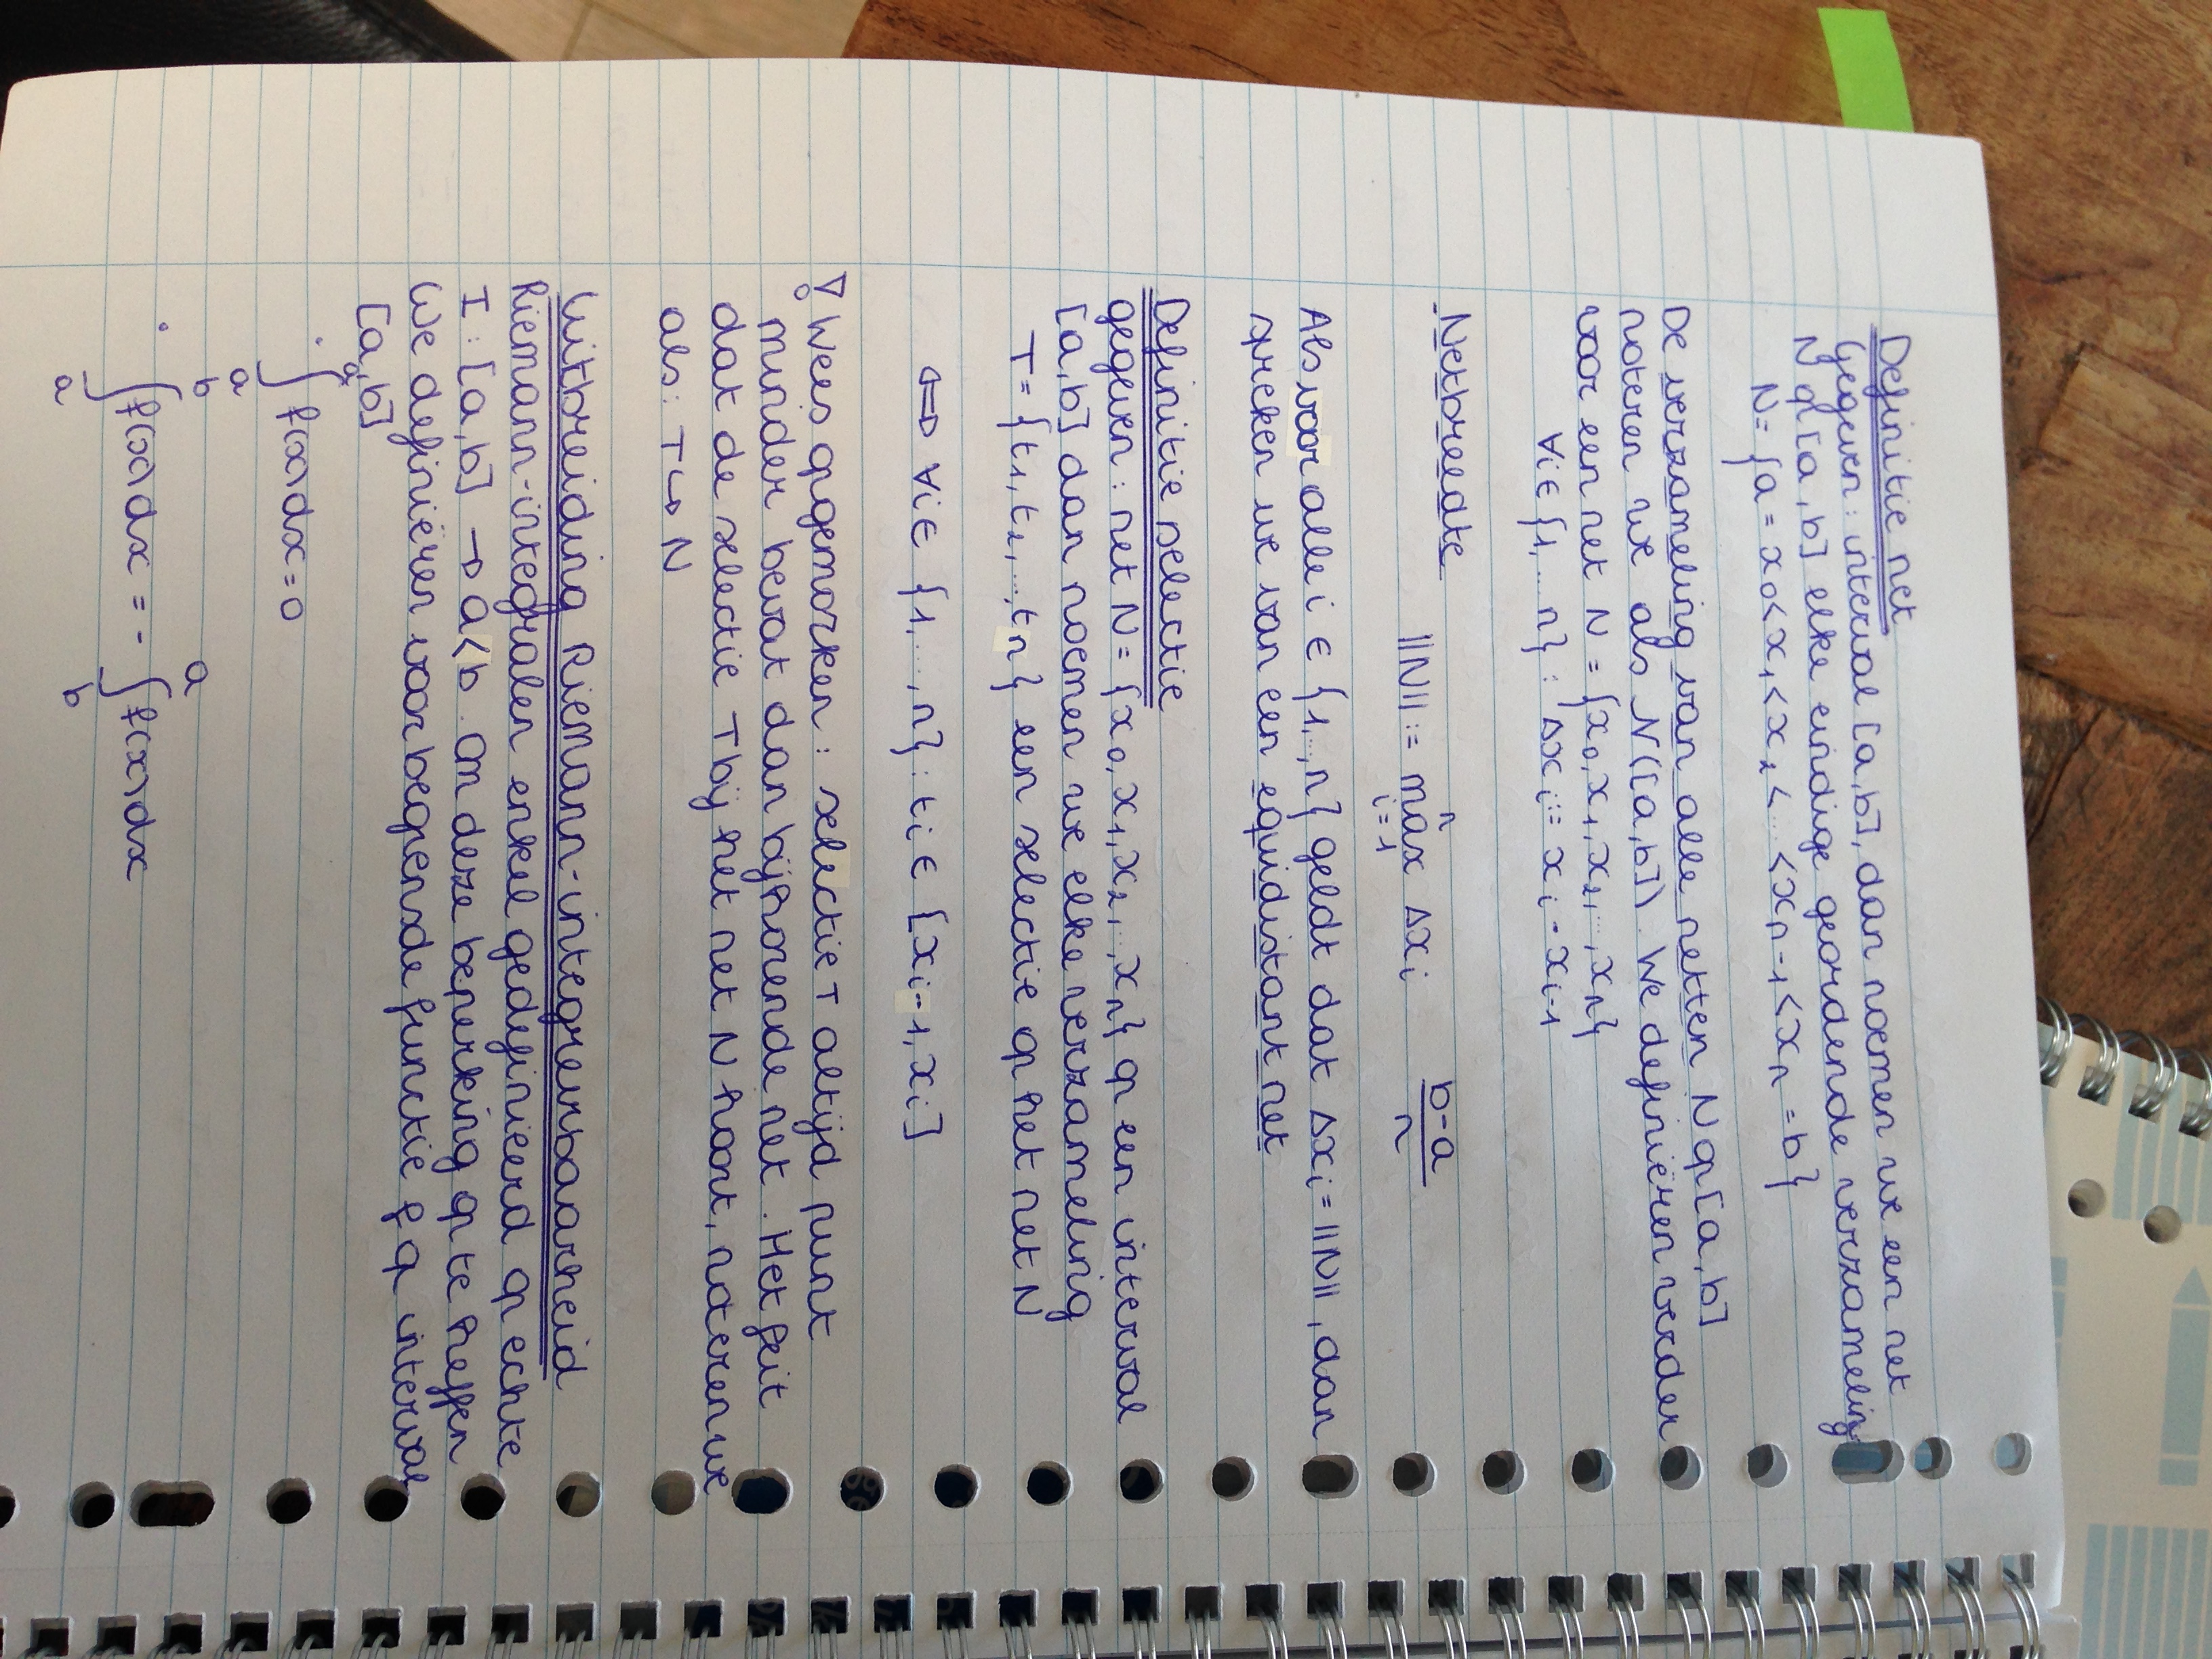 Definitie net
Gegeven: interval [a,b], dan noemen we een net
N op [a,b] elke eindige geordende verzameling
N = {a = x₀ < x₁ < x₂ < ... < xₙ₋₁ < xₙ = b}
De verzameling van alle netten N op [a,b]
noteren we als N([a,b]). We definiëren verder
voor een net N = {x₀, x₁, x₂, ..., xₙ}
∀i ∈ {1, ... n} : Δxᵢ := xᵢ - xᵢ₋₁
Netbreedte
||N|| := max_{i=1}^{n} Δxᵢ (b-a)/n
Als voor alle i ∈ {1,..,n} geldt dat Δxᵢ = ||N||, dan
spreken we van een equidistant net
Definitie selectie
gegeven: net N = {x₀, x₁, x₂, .., xₙ} op een interval
[a,b] dan noemen we elke verzameling
T = {t₁, t₂, ..., tₙ} een selectie op het net N
⇔ ∀i ∈ {1, ..., n} : tᵢ ∈ [xᵢ₋₁, xᵢ]
! Wees opgemorken : selectie T altijd punt
minder bevat dan bijhorende net. Het feit
dat de selectie T bij het net N hoort, noteren we
als: T ↪ N
Uitbreiding Riemann-integreerbaarheid
Riemann-integralen enkel gedefinieerd op echte
I : [a,b] → a<b. Om deze beperking op te heffen
We definiëren voor begrensde functie f op interval
[a,b]
· ∫ₐᵃ f(x)dx = 0
· ∫ₐᵇ f(x)dx = - ∫_b^a f(x)dx